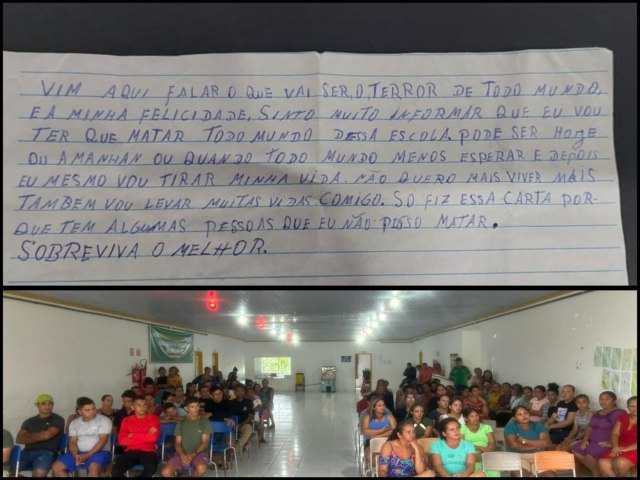 VIM AQUI FALAR O QUE VAI SER O TERROR DE TODO MUNDO,
E A MINHA FELICIDADE, SINTO MUITO INFORMAR QUE EU VOU
TER QUE MATAR TODO MUNDO DESSA ESCOLA. PODE SER HOJE
OU AMANHÁN OU QUANDO TODO MUNDO MENOS ESPERAR E DEPOIS
EU MESMO VOU TIRAR MINHA VIDA. NÃO QUERO MAIS VIVER MAIS
TAMBEM VOU LEVAR MUITAS VIDAS COMIGO. SO FIZ ESSA CARTA POR-
QUE TEM ALGUMAS PESSOAS QUE EU NÃO POSSO MATAR.
SOBREVIVA O MELHOR.